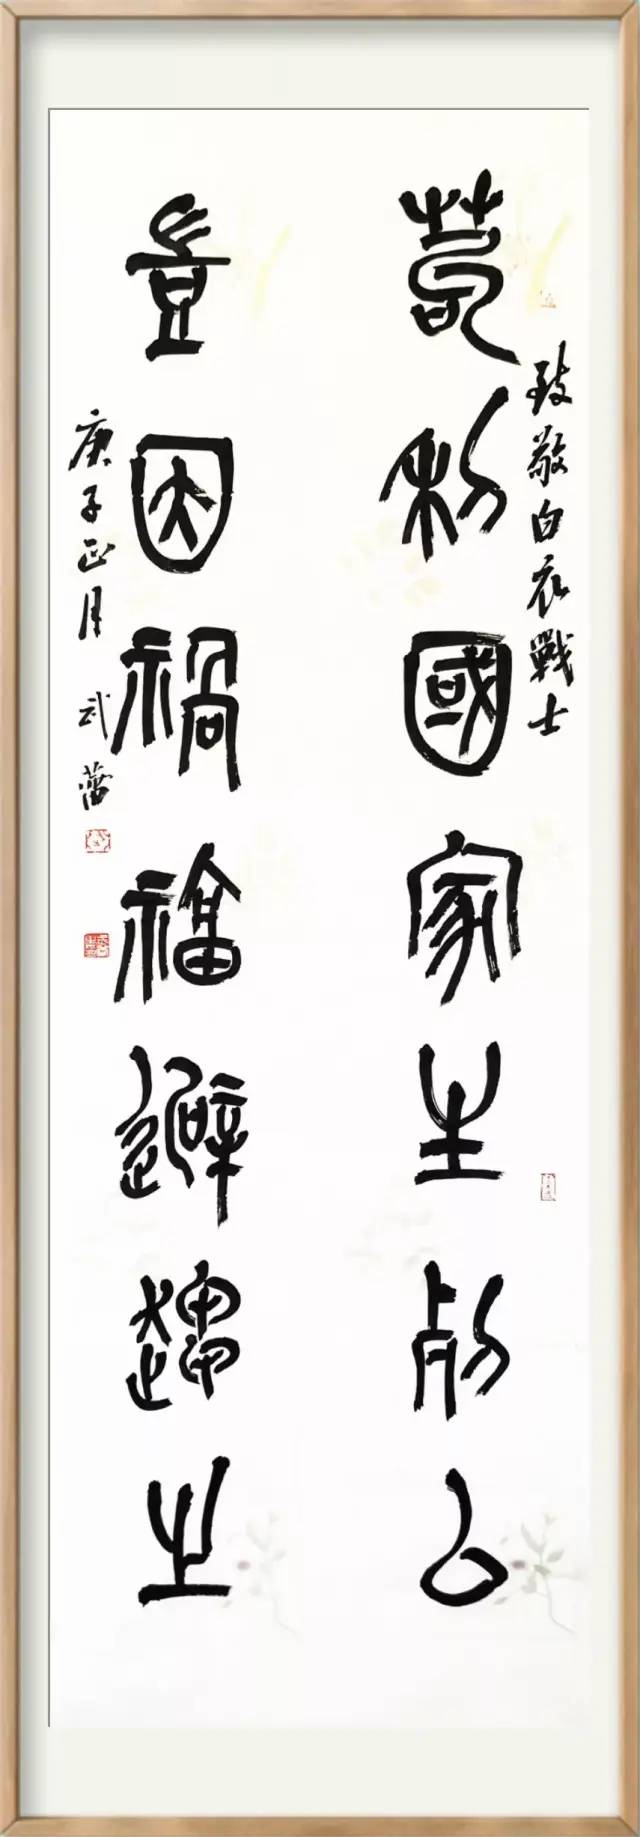 致敬白衣戰士
苟利國家生死以
豈因禍福避趨之
庚子正月 武蕾